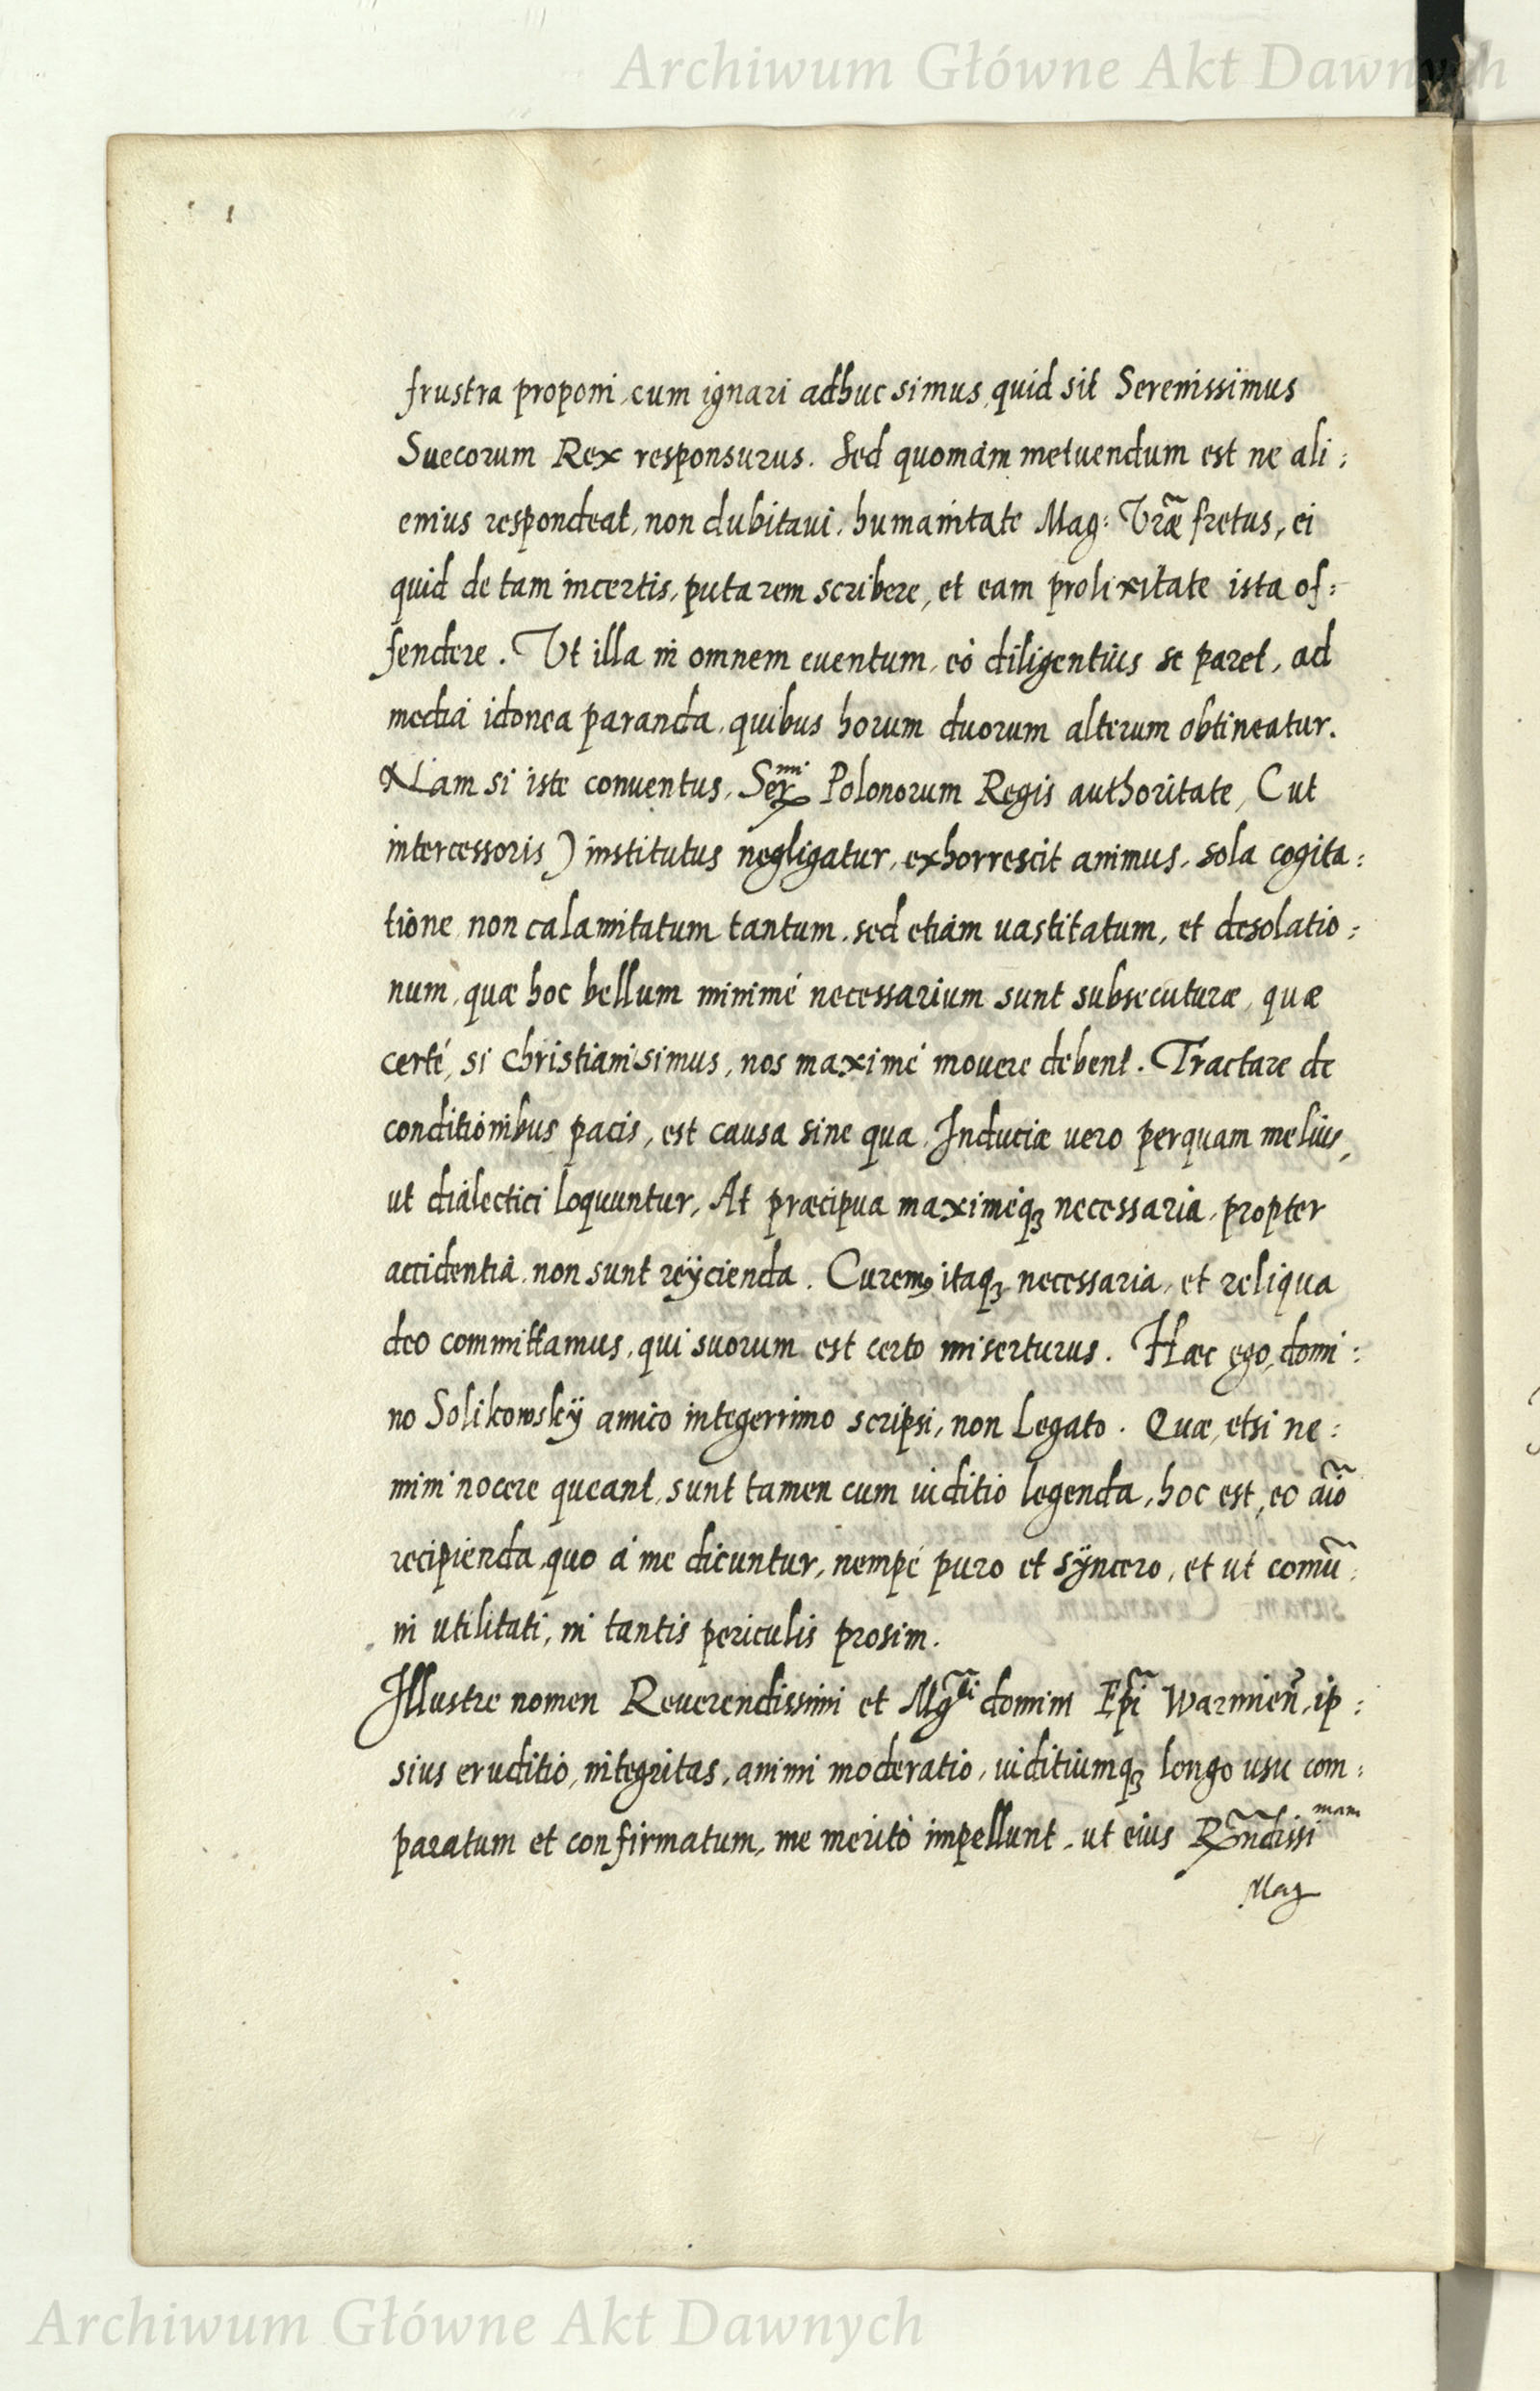 Archiwum Główne Akt Dawnych
frustra proponi, cum ignari adhuc simus, quid sit Serenissimus
Suecorum Rex responsurus. Sed quoniam metuendum est ne ali:
enius respondeat, non dubitavi, humanitate Mag: Vr̃æ fretus, ei
quid de tam incertis, putarem scribere, et eam prolixitate ista of:
fendere. Ut illa in omnem euentum, eò diligentiùs se paret, ad
media idonea paranda, quibus horum duorum alterum obtineatur.
Nam si iste conuentus, Ser.mi Polonorum Regis authoritate, (ut
intercessoris) institutus negligatur, exhorrescit animus, sola cogita:
tione non calamitatum tantum, sed etiam uastitatum, et desolatio:
num, quæ hoc bellum minimè necessarium sunt subsecuturæ, quæ
certè, si christiani simus, nos maximè mouere debent. Tractare de
conditionibus pacis, est causa sine qua, Induciæ uero perquam melius,
ut dialectici loquuntur, At præcipua maximéq; necessaria, propter
accidentia, non sunt reÿcienda. Curem9 itaq; necessaria, et reliqua
deo committamus, qui suorum est certo miserturus. Hæc ego, domi:
no Solikowskÿ amico integerrimo scripsi, non Legato. Quæ, etsi ne:
mini nocere queant, sunt tamen cum iuditio legenda, hoc est, eo aĩo
recipienda, quo à me dicuntur, nempè puro et sÿncero, et ut comũ:
ni utilitati, in tantis periculis prosim.
Illustre nomen Reuerendissimi et Mg̃ci domini Ep̃i Warmieñ, ip:
sius eruditio, integritas, animi moderatio, iuditiumq; longo usu com:
paratum et confirmatum, me meritò impellunt, ut eius R̃ndissimam
Mag
Archiwum Główne Akt Dawnych